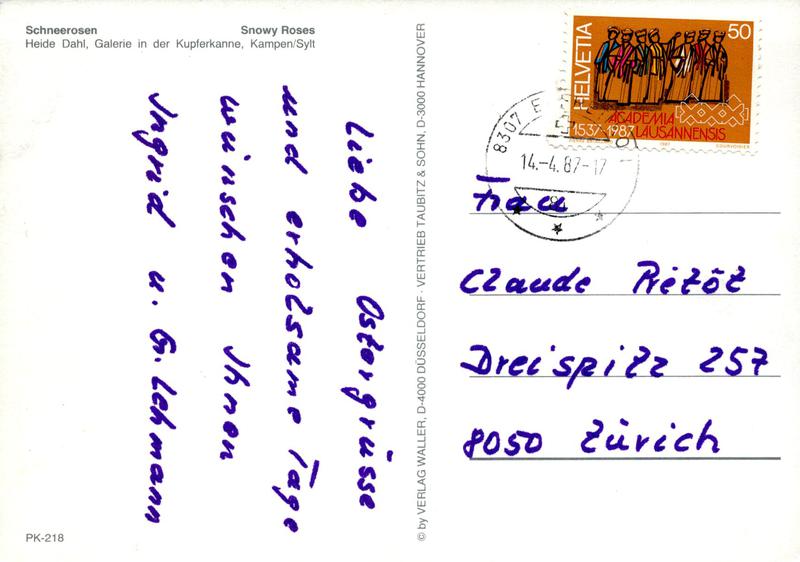 Schneerosen Snowy Roses
Heide Dahl, Galerie in der Kupferkanne, Kampen/Sylt
Liebe Ostergrüsse
und erholsame Tage
wünschen Ihnen
Ingrid u. G. Lehmann
PK-218
© by VERLAG WALLER, D-4000 DÜSSELDORF · VERTRIEB TAUBITZ & SOHN, D-3000 HANNOVER
HELVETIA
50
ACADEMIA
1537-1987 LAUSANNENSIS
1987 COURVOISIER
8307
14.-4.87-17
Frau
Claude
Dreispitz 257
8050 Zürich